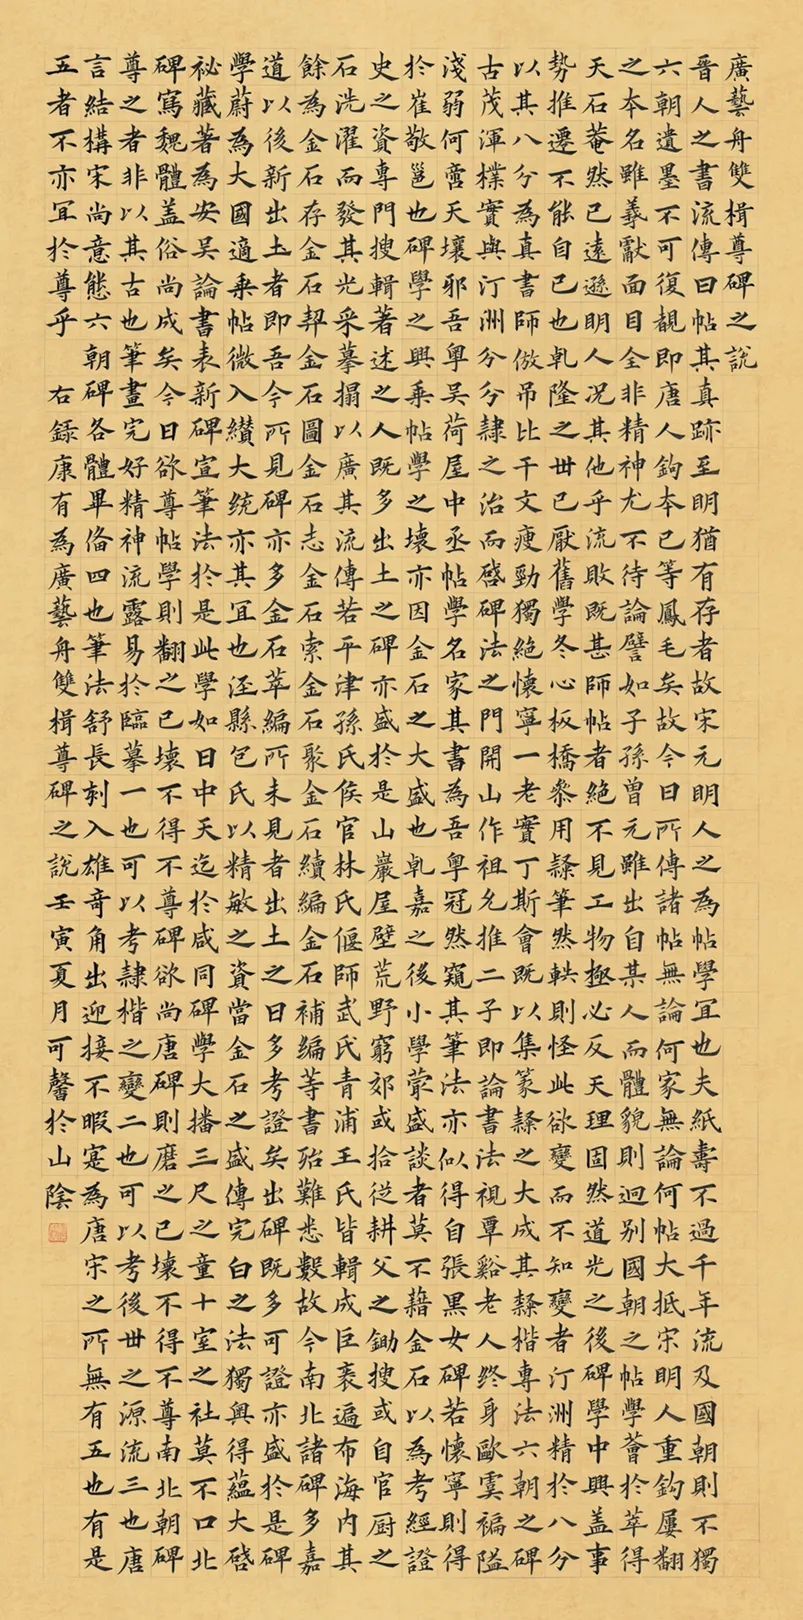 廣藝舟雙楫尊碑之說
晉人之書流傳曰帖其真跡至明猶有存者故宋元明人之為帖學宜也夫紙壽不過千年流及國朝則不獨
六朝遺墨不可復覩即唐人鈎本已等鳳毛矣故今日所傳諸帖無論何家無論何帖大抵宋明人重鈎屢翻
之本名雖羲獻面目全非精神尤不待論譬如子孫曾元雖出自某人而體貌則迥別國朝之帖學薈於萃得
天石菴然已遠遜明人況其他乎流敗既甚師帖者絕不見工物極必反天理固然道光之後碑學中興蓋事
勢推遷不能自已也乹隆之丗已厭舊學冬心板橋叅用隸筆然軼則怪此欲變而不知變者汀洲精於八分
以其八分為真書師倣吊比干文瘦勁獨絕懷寧一老實丁斯會既以集篆隸之大成其隸楷專法六朝之碑
古茂渾樸實與汀洲分分隸之治而啓碑法之門開山作祖允推二子即論書法視覃谿老人終身歐虞褊隘
淺弱何啻天壤邪吾粵吳荷屋中丞帖學名家其書為吾粵冠然窺其筆法亦似得自張黑女碑若懷寧則得
於崔敬邕也碑學之興乗帖學之壞亦因金石之大盛也乹嘉之後小學最盛談者莫不藉金石以為考經證
史之資專門搜輯著述之人既多出土之碑亦盛於是山巖屋壁荒野窮郊或拾從耕父之鋤搜或自官厨之
石洗濯而發其光采摹搨以廣其流傳若平津孫氏侯官林氏偃師武氏青浦王氏皆輯成巨袠遍布海內其
餘為金石存金石契金石圖金石志金石索金石聚金石續編金石補編等書殆難悉數故今南北諸碑多嘉
道以後新出土者即吾今所見碑亦多金石萃編所未見者出土之日多考證矣出碑既多可證亦盛於是碑
學蔚為大國適乗帖微入纘大统亦其宜也涇縣包氏以精敏之資當金石之盛傳完白之法獨興得蘊大啓
祕藏著為安吳論書表新碑宣筆法於是此學如日中天迄於咸同碑學大播三尺之童十室之社莫不口北
碑寫魏體蓋俗尚成矣今日欲尊帖學則翻之已壞不得不尊碑欲尚唐碑則磨之已壞不得不尊南北朝碑
尊之者非以其古也筆畫完好精神流露易於臨摹一也可以考隸楷之變二也可以考後丗之源流三也唐
言結構宋尚意態六朝碑各體畢俻四也筆法舒長刻入雄奇角出迎接不暇寔為唐宋之所無有五也有是
五者不亦宜於尊乎 右録康有為廣藝舟雙楫尊碑之說壬寅夏月可馨於山陰